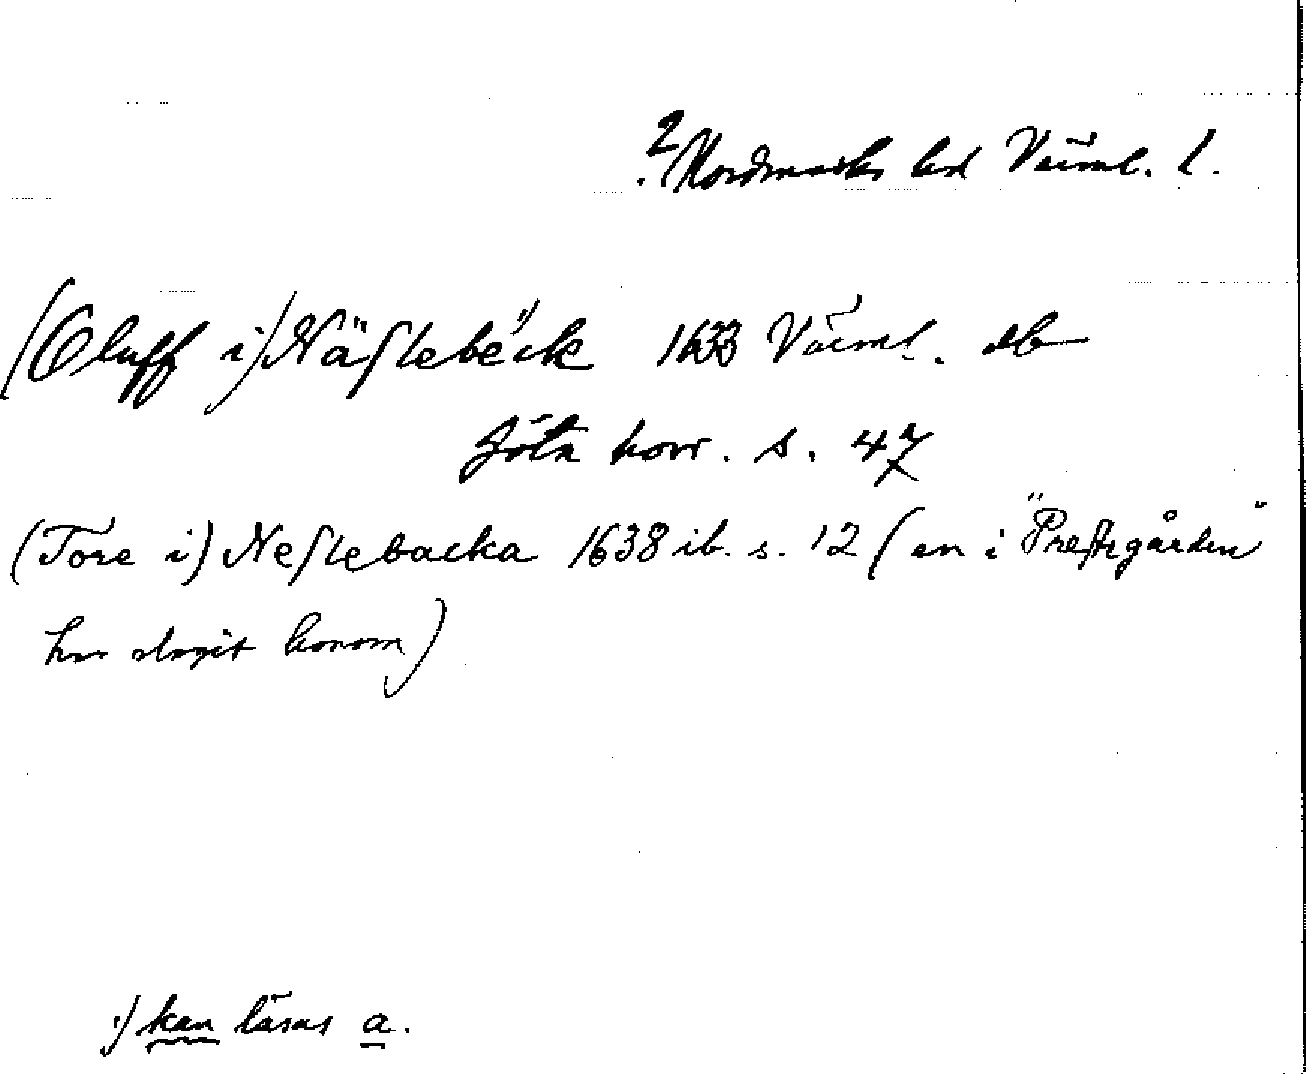 ? Nordmarks hd Värml. l.
(Oluff i) Näſlebe¹⁾ck 1633 Värml. db
Göta hovr. s. 47
(Tore i) Neſlebacka 1638 ib. s. 12 (en i "Prestgården"
har slagit honom)
¹) kan läsas a.